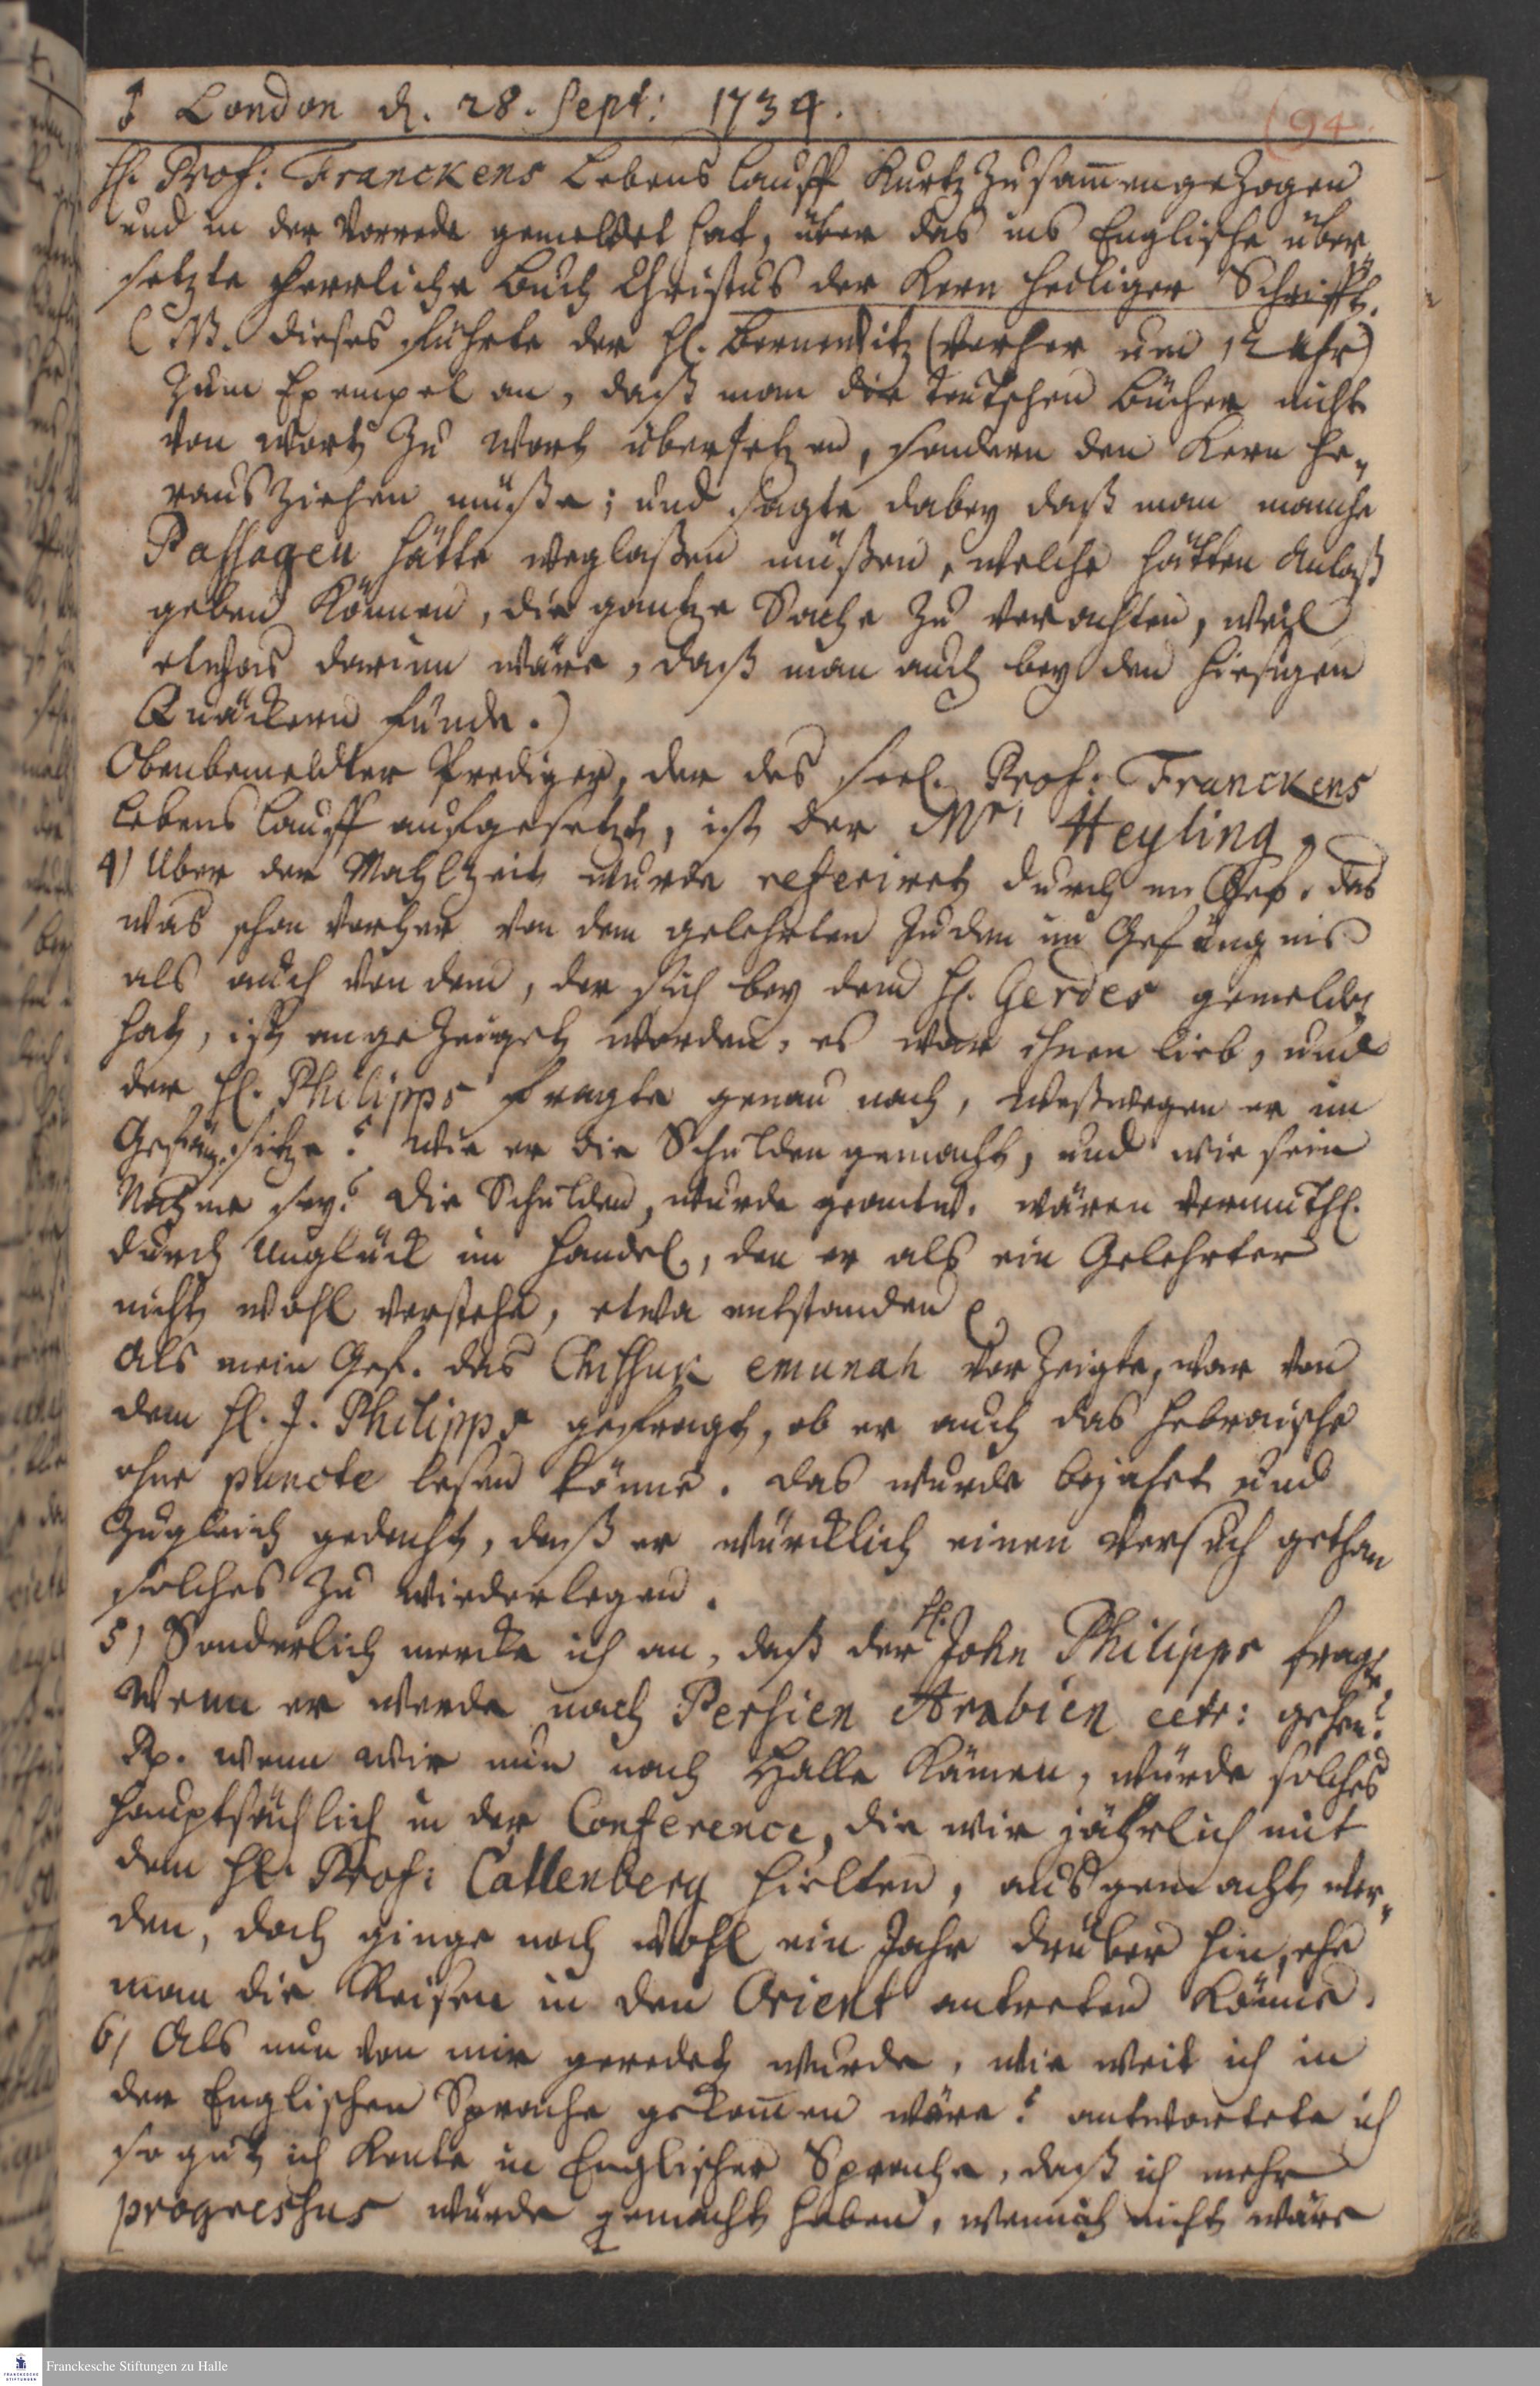 ♂ London d. 28. Sept: 1734.
(94.
H. Prof: Franckens Lebens Lauff kurtz zusam̄engezogen
und in der Vorrede gemeldet hat, über das ins Englische über„
setzte herrliche Buch Christus der Kern heiliger Schrifft.
(NB. dieses führte der H. Berenwitz (vorher um 12 Uhr)
zum Exempel an, daß man die teutschen Bücher nicht
von Wort zu Wort übersetzen, sondern den Kern he„
rausziehen müße; und sagte dabey daß man manche
Passagen hätte weglaßen müßen, welche hätten Anlaß
geben können, die gantze Sache zu verachten, weil
etwas darinn wäre, daß man auch bey den hiesigen
Quäckern fünde.)
Obenbemeldter Prediger, der des seel. Prof: Franckens
Lebens Lauff aufgesetzt, ist der Mr: Heyling.
4) Uber der Mahlzeit wurde referiret durch m. Gef. das
was schon vorher von dem gelehrten Juden im Gefängnis
als auch von dem, der sich bey dem H. Gerdes gemeldet
hat, ist angezeiget worden, es war ihnen lieb, und
der H. Philipps fragte genau nach, weßwegen er im
Gefäng. sitze? wie er die Schulden gemacht, und wie sein
Nahme sey? Die Schulden, wurde geantw. wären vermuthl.
durch Unglück im Handel, den er als ein Gelehrter
nicht wohl verstehe, etwa entstanden
Als mein Gef. das Chissuk emunah vorzeigte, war von
dem H. J. Philipps gefragt, ob er auch das Hebraische
ohne puncte lesen könne. das wurde bejahet und
zugleich gedacht, daß er würcklich einen Versuch gethan
solches zu wiederlegen.
5) Sonderlich mercke ich an, daß der H. John Philipps fragte,
Wenn er werde nach Persien Arabien cetr: gehen?
Rp. wenn wir nun nach Halle kämen, würde solches
hauptsächlich in der Conference, die wir jährlich mit
dem H. Prof: Callenberg hielten, ausgemacht wer„
den, doch ginge noch wohl ein Jahr drüber hin, ehe
man die Reisen in den Orient antreten könne.
6) Als nun von mir geredet wurde, wie weit ich in
der Englischen Sprache gekom̄en wäre? antwortete ich
so gut ich konte in Englischer Sprache, daß ich mehr
progressus würde gemacht haben, wenn ich nicht wäre
Franckesche Stiftungen zu Halle